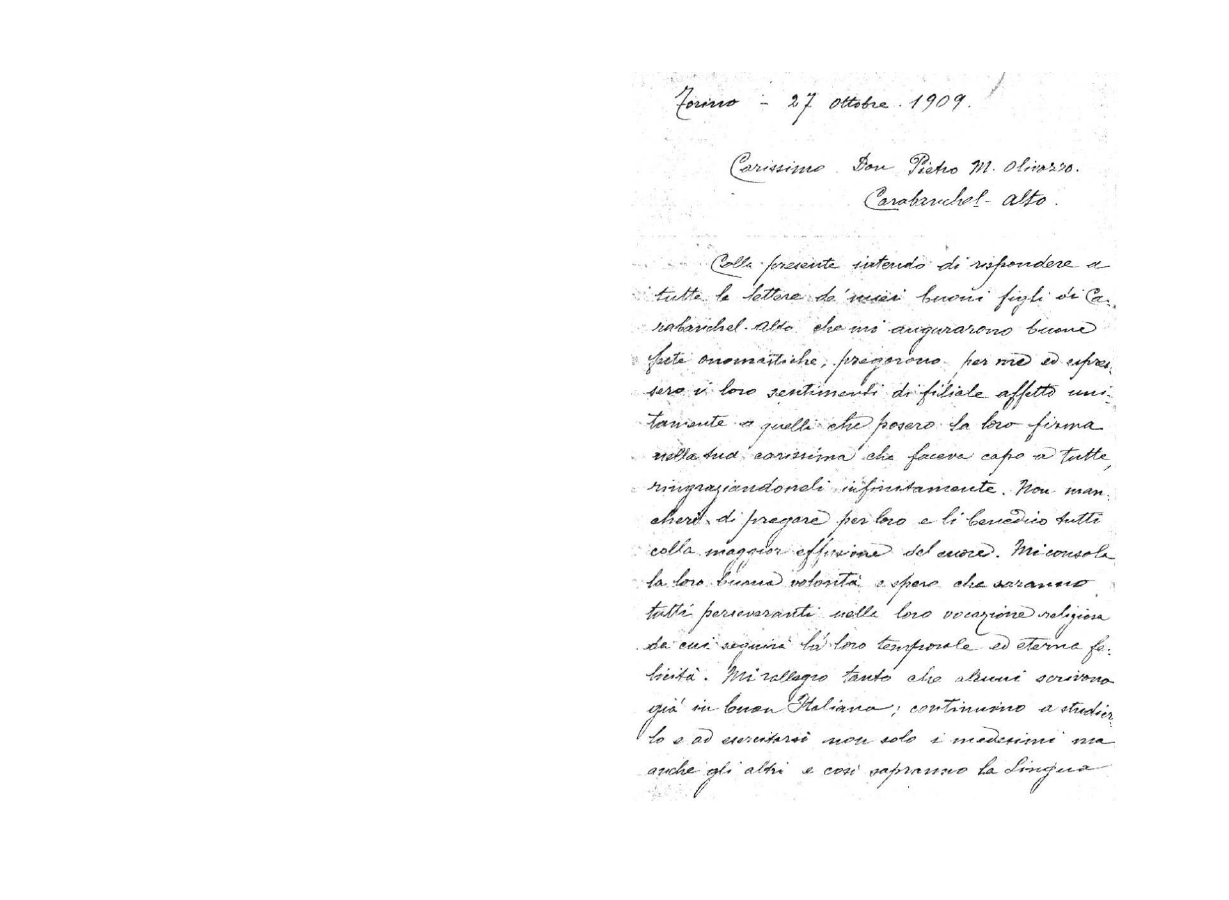 Torino - 27 Ottobre . 1909.
Carissimo Don Pietro M. Olivazzo.
Carabanchel - Alto .
Colla presente intendo di rispondere a
tutte le lettere de' miei buoni figli di Ca-
rabanchel - Alto che mi augurarono buone
feste onomastiche, pregarono per me ed espres-
sero i loro sentimenti di filiale affetto uni-
tamente a quelli che posero la loro firma
nella sua carissima che faceva capo a tutte,
ringraziandoneli infinitamente. Non man-
cherò di pregare per loro e li benedico tutti
colla maggior effusione del cuore. Mi consola
la loro buona volontà e spero che saranno
tutti perseveranti nella loro vocazione religiosa
da cui seguirà la loro temporale ed eterna fe-
licità. Mi rallegro tanto che alcuni scrivono
già in buon Italiano; continuino a studiar-
lo e ad esercitarsi non solo i medesimi ma
anche gli altri e così sapranno la Lingua